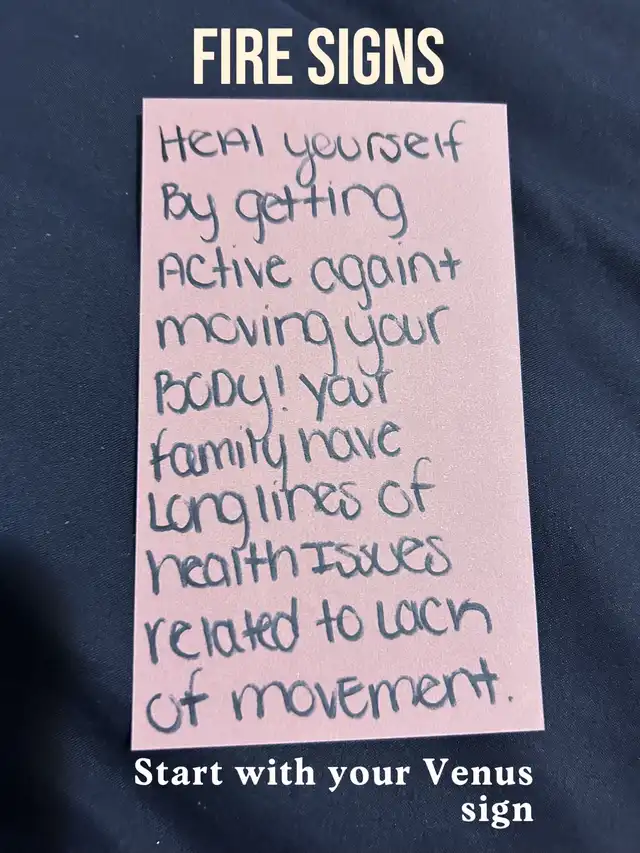 FIRE SIGNS
Heal yourself
By getting
Active again +
moving your
BODY! your
family have
Long lines of
health Issues
related to Lack
of movement.
Start with your Venus
sign